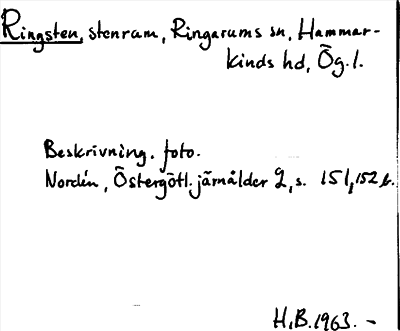 Ringsten, stenram, Ringarums sn, Hammar-
kinds hd, Ög.l.
Beskrivning. foto.
Nordén, Östergötl. järnålder 2, s. 151, 152 b.
H.B. 1963. -